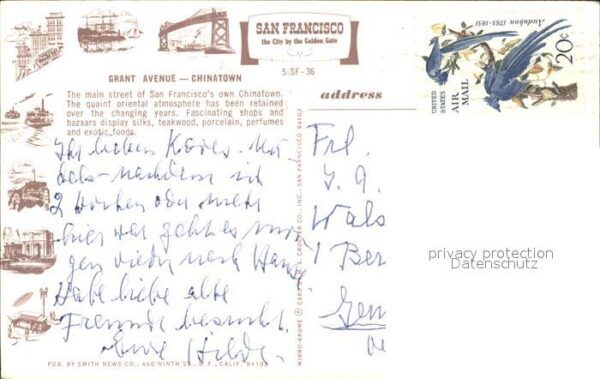 SAN FRANCISCO
the City by the Golden Gate
5:SF-36
GRANT AVENUE — CHINATOWN
The main street of San Francisco's own Chinatown.
The quaint oriental atmosphere has been retained
over the changing years. Fascinating shops and
bazaars display silks, teakwood, porcelain, perfumes
and exotic foods.
address
Audubon 1785-1851
20c
UNITED STATES
AIR MAIL
Ihr lieben
nachdem ich
2 Wochen oder mehr
hier war geht es mor
gen wieder nach Haus
Habe liebe alte
Freunde besucht.
Eure Hilde.
MIRRO-KROME ® CARD BY H. S. CROCKER CO., INC., SAN FRANCISCO 94103
Frl.
1 Ber
privacy protection
Datenschutz
PUB. BY SMITH NEWS CO., 460 NINTH ST., S. F., CALIF. 94103